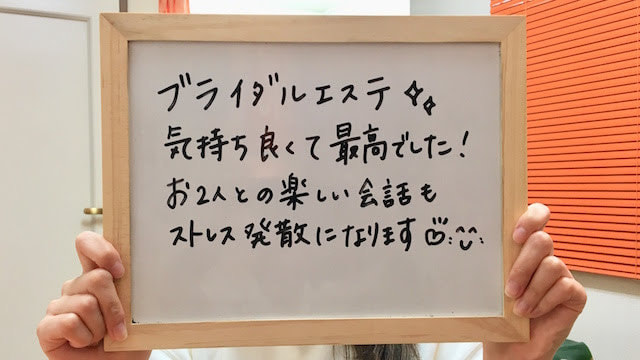 ブライダルエステ✧✧
気持ち良くて最高でした!
お2人との楽しい会話も
ストレス発散になります♡:^^: